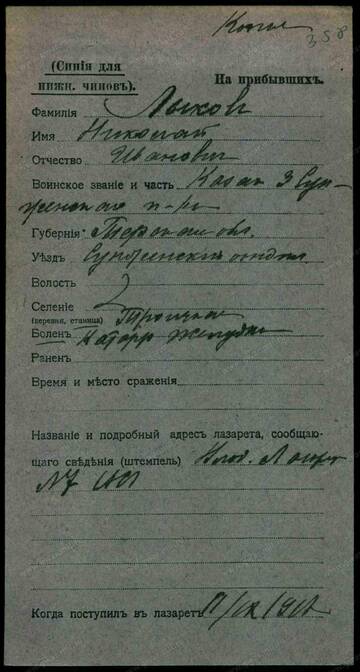 Копия
358
(Синія для
нижн. чиновъ).
На прибывшихъ.
Фамилія Лыковъ
Имя Николай
Отчество Ивановъ
Воинское званіе и часть Казак 3 Сун-
женскаго п-ка
Губернія Терская обл.
Уѣздъ Сунженский отдел.
Волость
Селеніе
(деревня, станица) Троицкая
Боленъ Катарр желудка
Раненъ
Время и мѣсто сраженія
Названіе и подробный адресъ лазарета, сообщаю-
щаго свѣдѣнія (штемпель)
Когда поступилъ въ лазаретъ